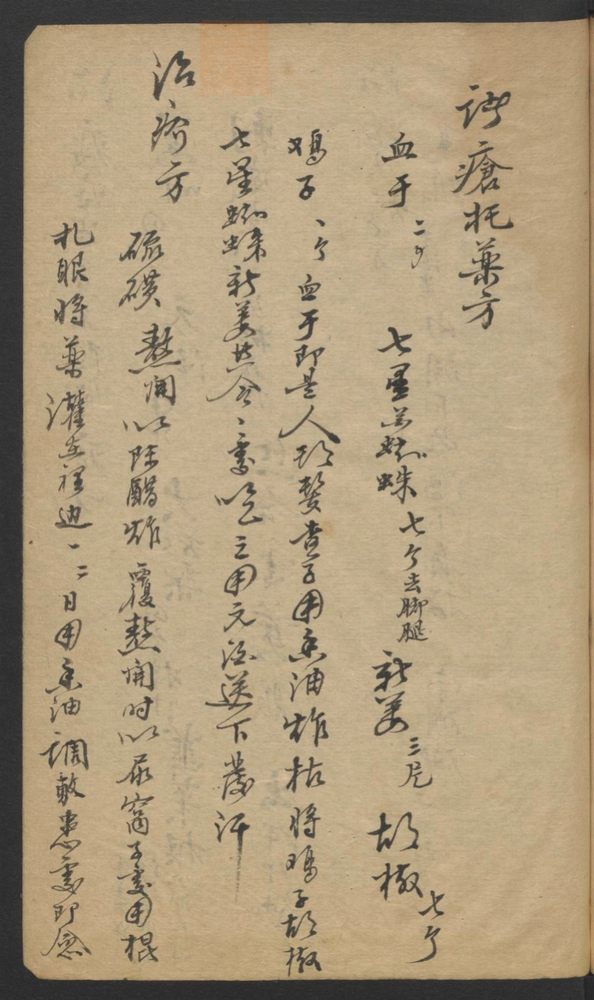 疔瘡托藥方
血子二个 七星蜘蛛七个去脚腿 新姜三片 胡椒七个
鳮子一个血子即是人頭髮 用香油炸枯将鳮子胡椒
七星蜘蛛新姜共合一處吃之用元酒送下發汗
治疥方
硫磺熬開以陳醋炸覆熬開时以尿窩子 用棍
扎眼将藥灌在裡边一二日用香油調敷患處即愈